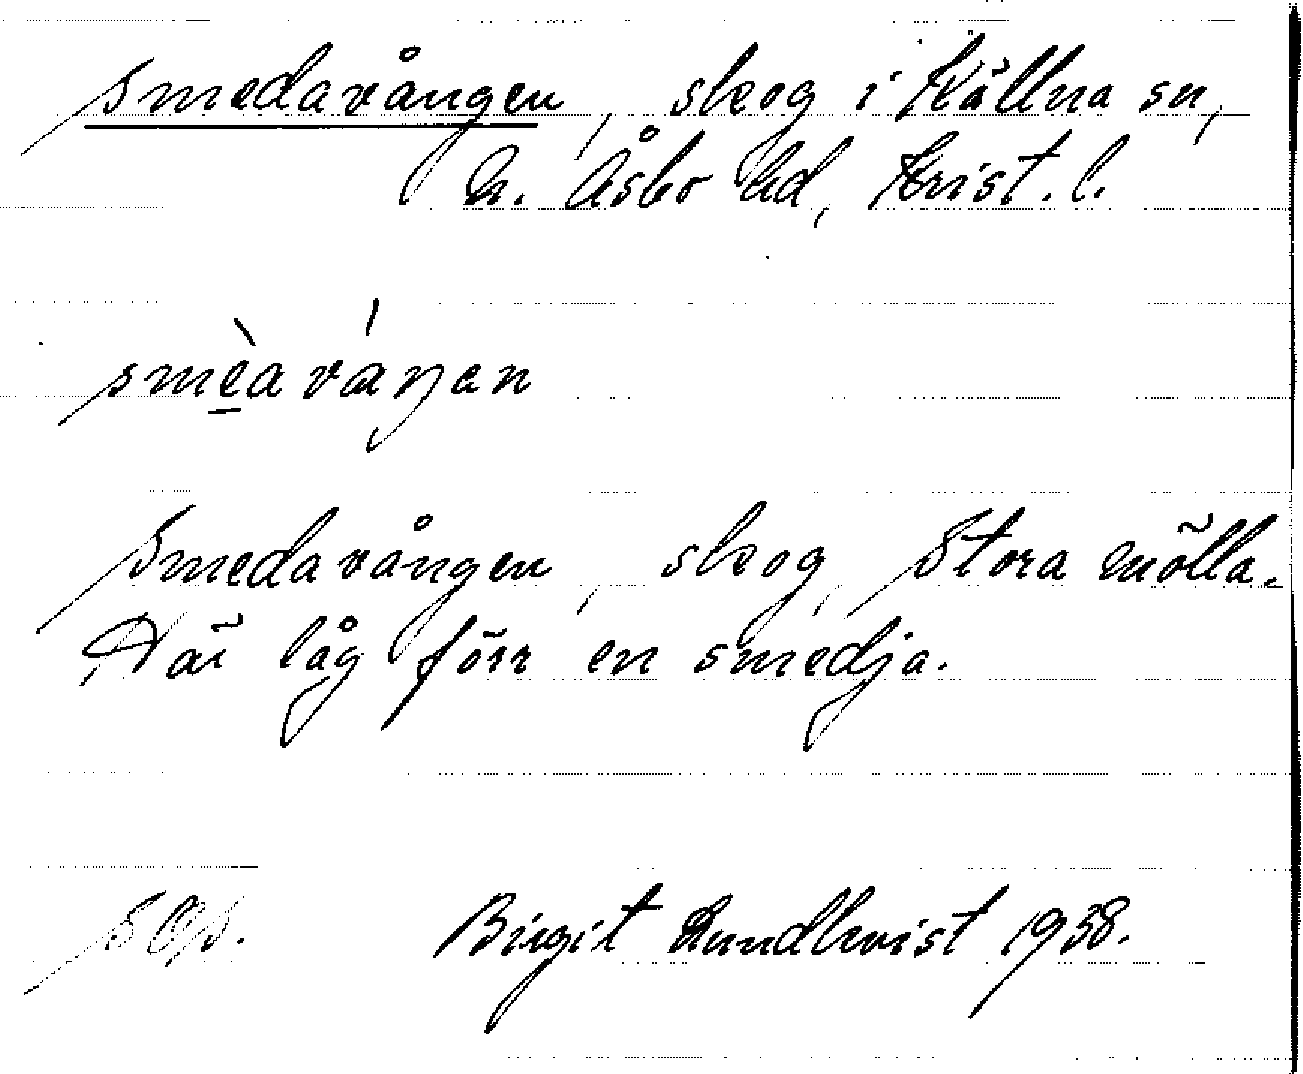 Smedavången, skog i Källna sn,
N. Åsbo hd, Krist. l.
smèaváŋen
Smedavången, skog, Stora mölla.
Där låg förr en smedja.
SOS. Birgit Lundkvist 1938.